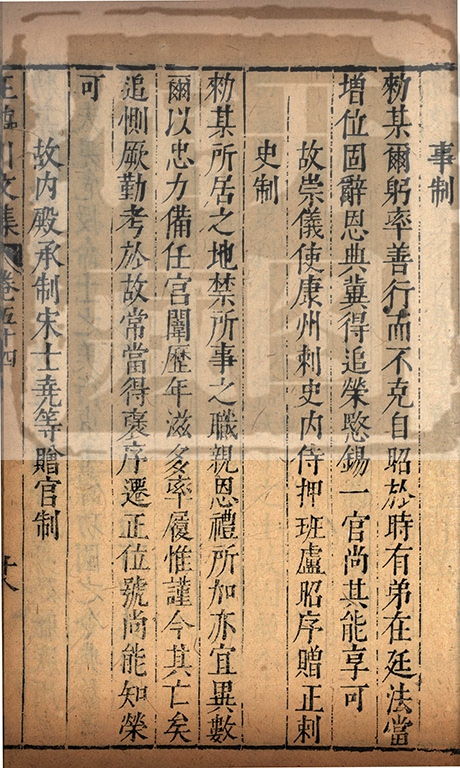 事制
勑某爾躬率善行而不克自昭於時有弟在廷法當
增位固辭恩典冀得追榮愍錫一官尚其能享可
故崇儀使康州刺史内侍押班盧昭序贈正刺
史制
勑某所居之地禁所事之職親恩禮所加亦宜異數
爾以忠力備任宫闈歷年滋多率履惟謹今其亡矣
追惻厥勤考於故常當得褒序遷正位號尚能知榮
可
故内殿承制宋士堯等贈官制
王臨川文集 卷五十四 十八